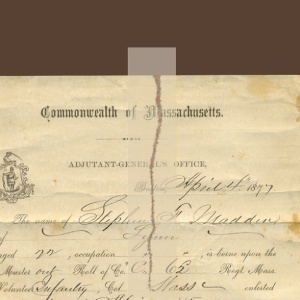 Commonwealth of Massachusetts.
ADJUTANT-GENERAL'S OFFICE,
Boston, April 4th 1877
The name of Stephen F. Madden
Lynn
aged 22, occupation is borne upon the
Muster out Roll of Co. 62 Regt Mass
Volunteer Infantry Col Mass enlisted